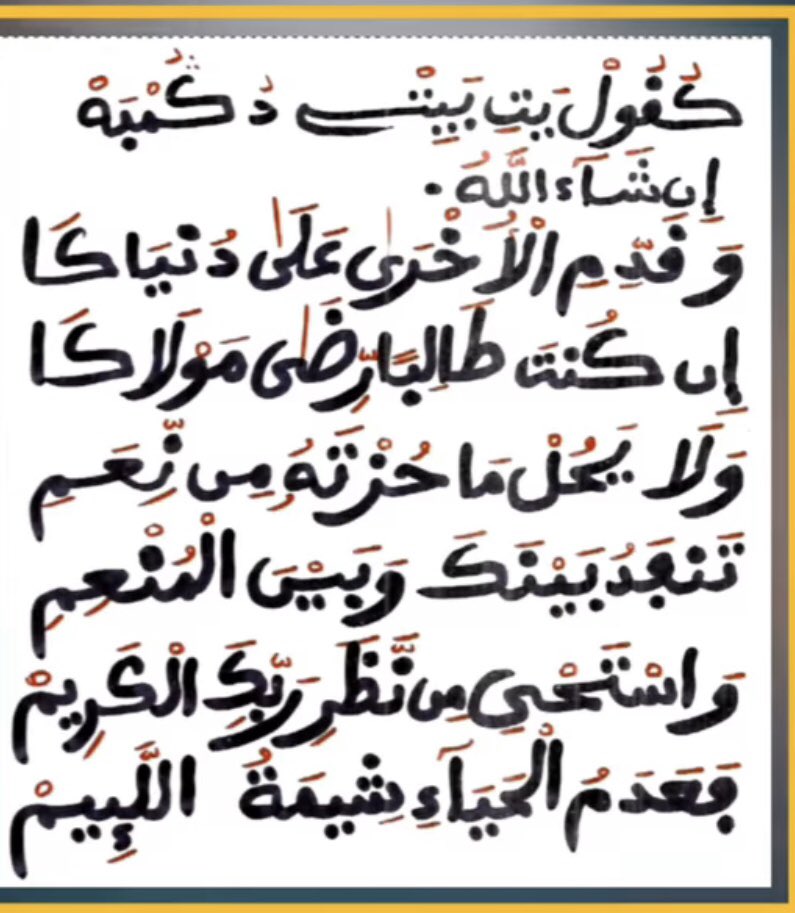 يَتِ بَيِتْ دُ
إِن شَآءَ اللَّهُ.
وَقَدِّمِ الْأُخْرَىٰ عَلَىٰ دُنْيَاكَا
إِن كُنتَ طَالِبًا رِّضَىٰ مَوْلَاكَا
وَلَا يَحُلْ مَا حُزْتَهُ مِن نِّعَمِ
تَنفَدُ بَيْنَكَ وَبَيْنَ الْمُنْعِمِ
وَاسْتَحْيِ مِن نَّظَرِ رَبِّكَ الْكَرِيمْ
فَعَدَمُ الْحَيَآءِ شِيمَةُ اللَّئِيمْ